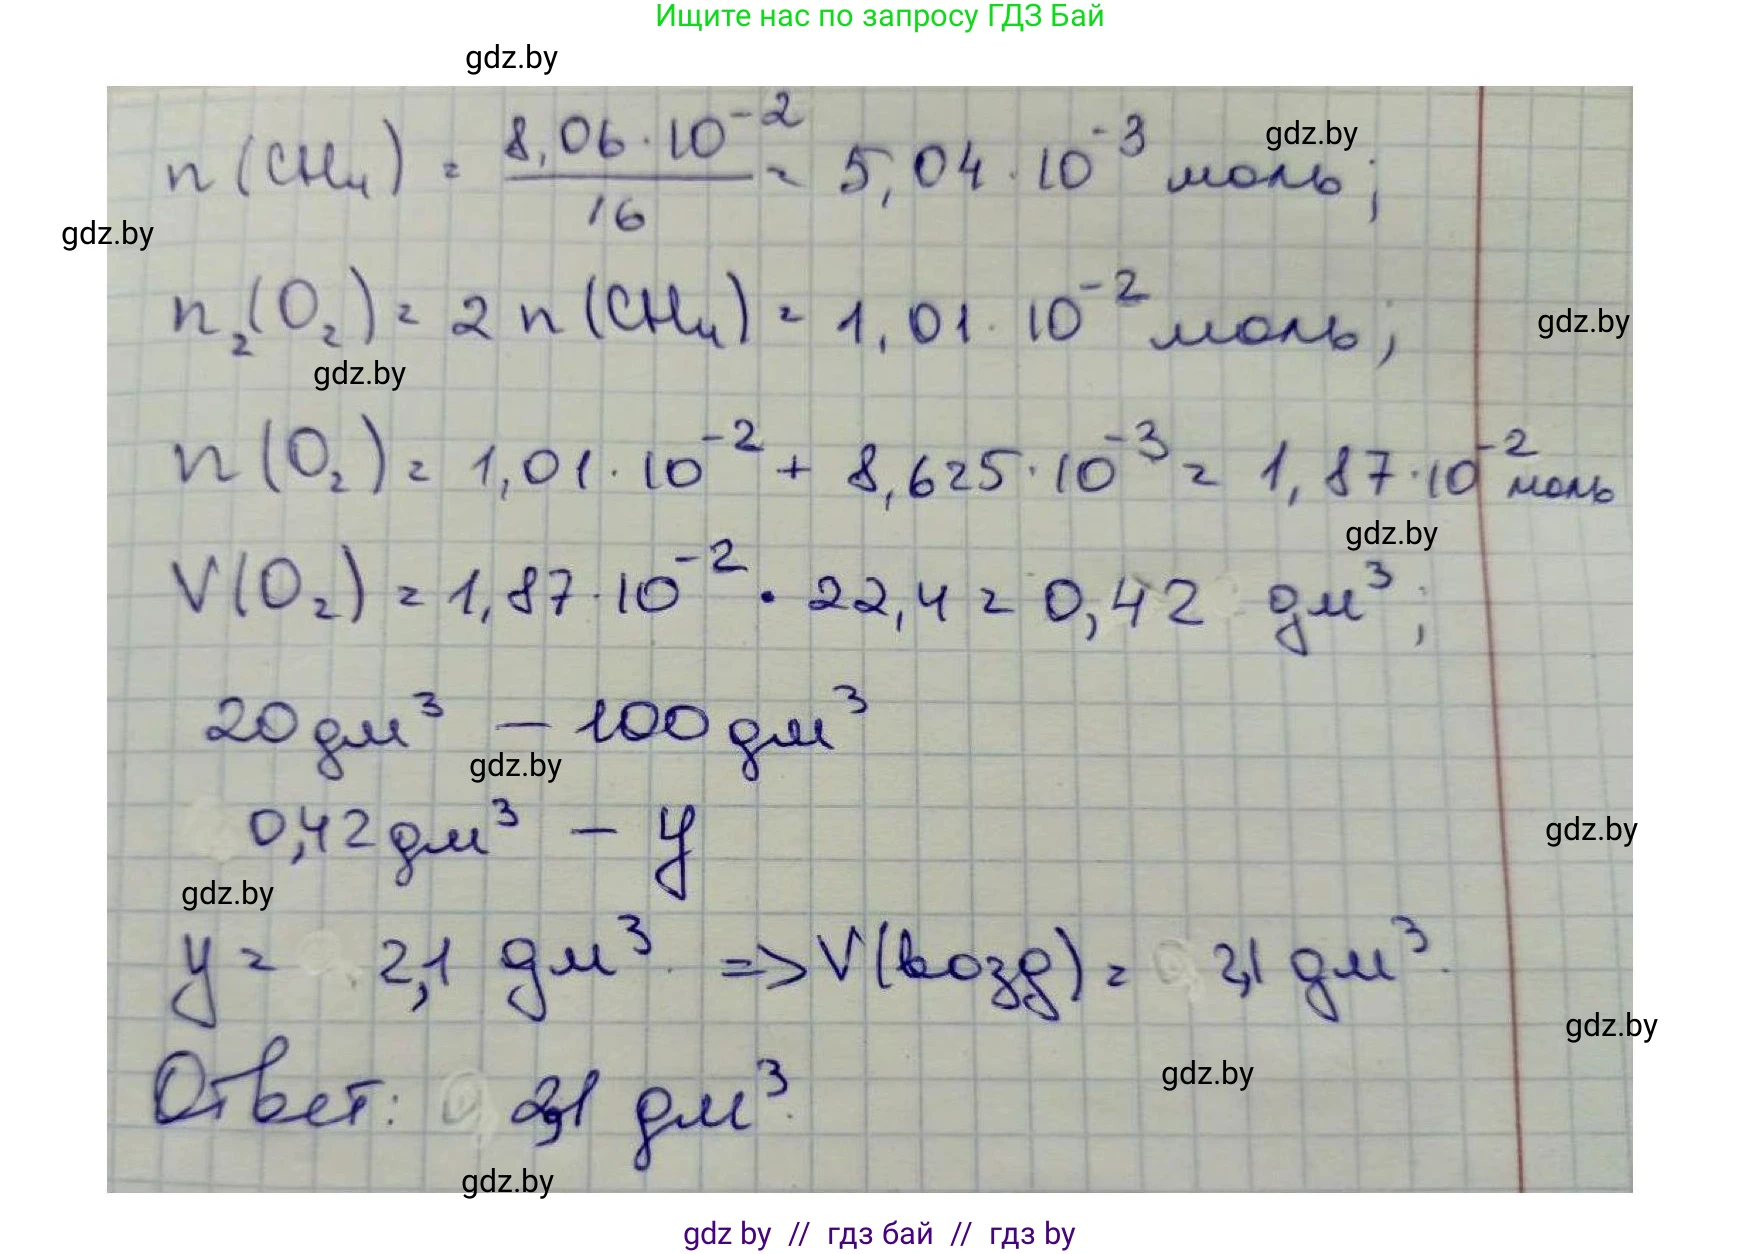 Ищите нас по запросу ГДЗ Бай
gdz.by
n(CH₄) = 8,06·10⁻² / 16 = 5,04·10⁻³ моль;
gdz.by
gdz.by
n₂(O₂) = 2n(CH₄) = 1,01·10⁻² моль;
gdz.by
gdz.by
n(O₂) = 1,01·10⁻² + 8,625·10⁻³ = 1,87·10⁻² моль
gdz.by
V(O₂) = 1,87·10⁻² · 22,4 = 0,42 дм³;
20 дм³ – 100 дм³
gdz.by
0,42 дм³ – y
gdz.by
gdz.by
y = 2,1 дм³. => V(возд) = 2,1 дм³.
gdz.by
gdz.by
Ответ: 2,1 дм³.
gdz.by
gdz by // гдз бай // гдз by